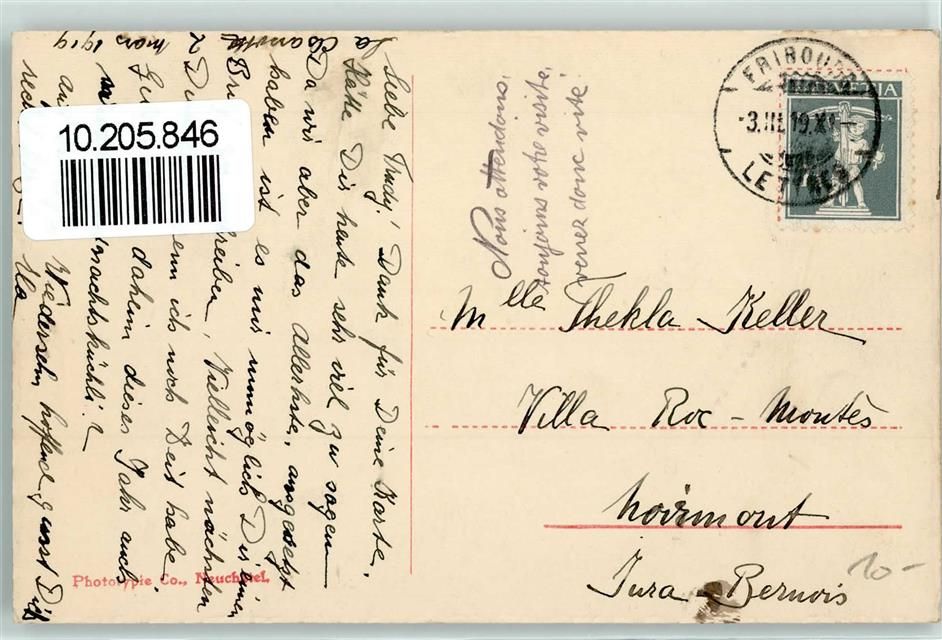 La
2 mars 1919
Liebe Trudy! Dank für Deine Karte.
Hätte Dir heute sehr viel zu sagen
Da wir aber das Allerhste, ausgesetzt
haben ist es mir unmöglich Dir einen
Br schreiben, Vielleicht nächsten
Di wenn ich noch Zeit habe.
daheim dieses Jahr auch
nachtsküchli?
Wiedersehn hoffend, grüsst Dich
10.205.846
Photo Co., Neuchâtel.
Nous attendons
toujours votre visite,
venez donc vite!
FRIBOURG
-3.III.19.X
LETTRES
HELVETIA
Mlle Thekla Keller
Villa Roc-Montès
Noirmont
Jura-Bernois
10-